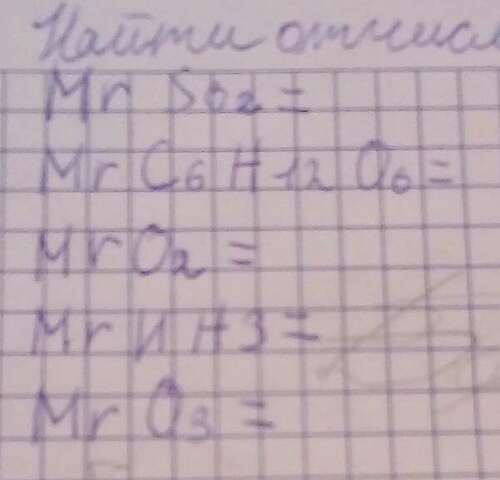 Найти
Mr SO2 =
Mr C6 H12 O6 =
Mr O2 =
Mr N H3 =
Mr O3 =